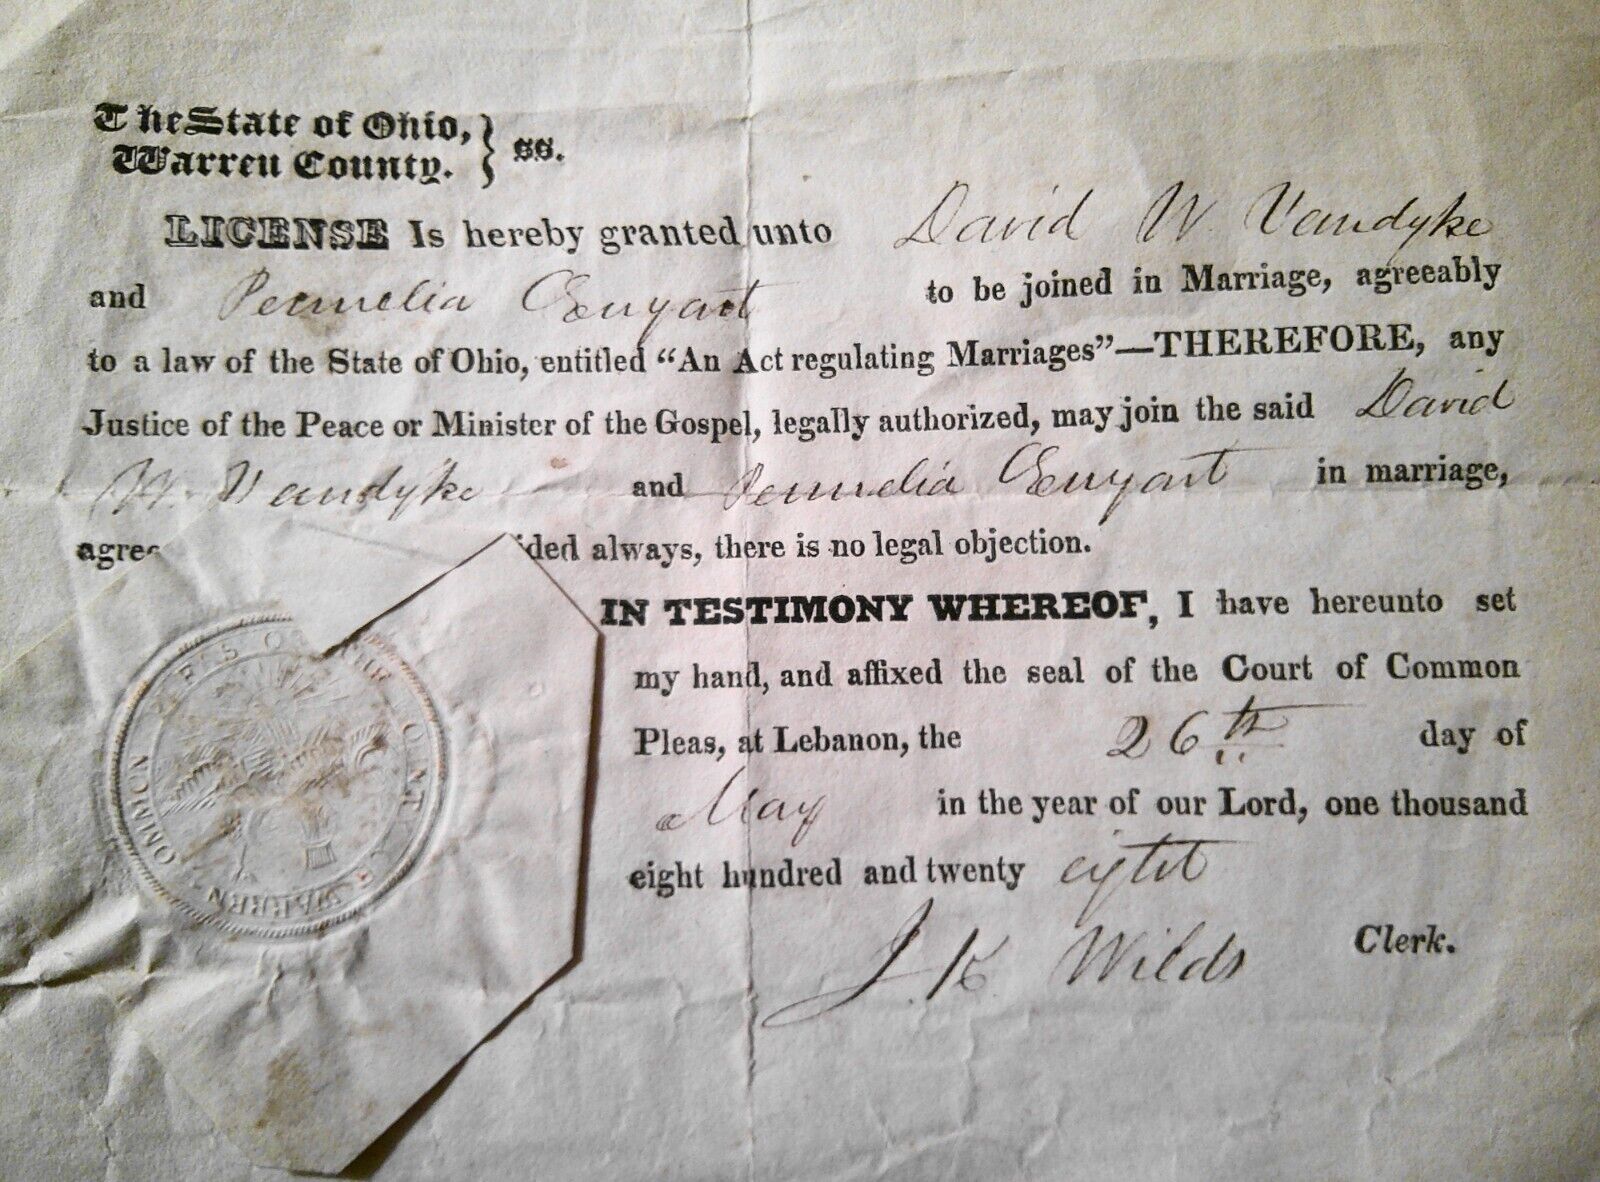 The State of Ohio,
Warren County. } ss.
LICENSE Is hereby granted unto David W. Vandyke
and Permelia Enyart to be joined in Marriage, agreeably
to a law of the State of Ohio, entitled “An Act regulating Marriages”—THEREFORE, any
Justice of the Peace or Minister of the Gospel, legally authorized, may join the said David
W. Vandyke and Permelia Enyart in marriage,
agree ided always, there is no legal objection.
IN TESTIMONY WHEREOF, I have hereunto set
my hand, and affixed the seal of the Court of Common
Pleas, at Lebanon, the 26th day of
May in the year of our Lord, one thousand
eight hundred and twenty eight
J. K. Wilds Clerk.
OMMON PLEAS O
WARREN